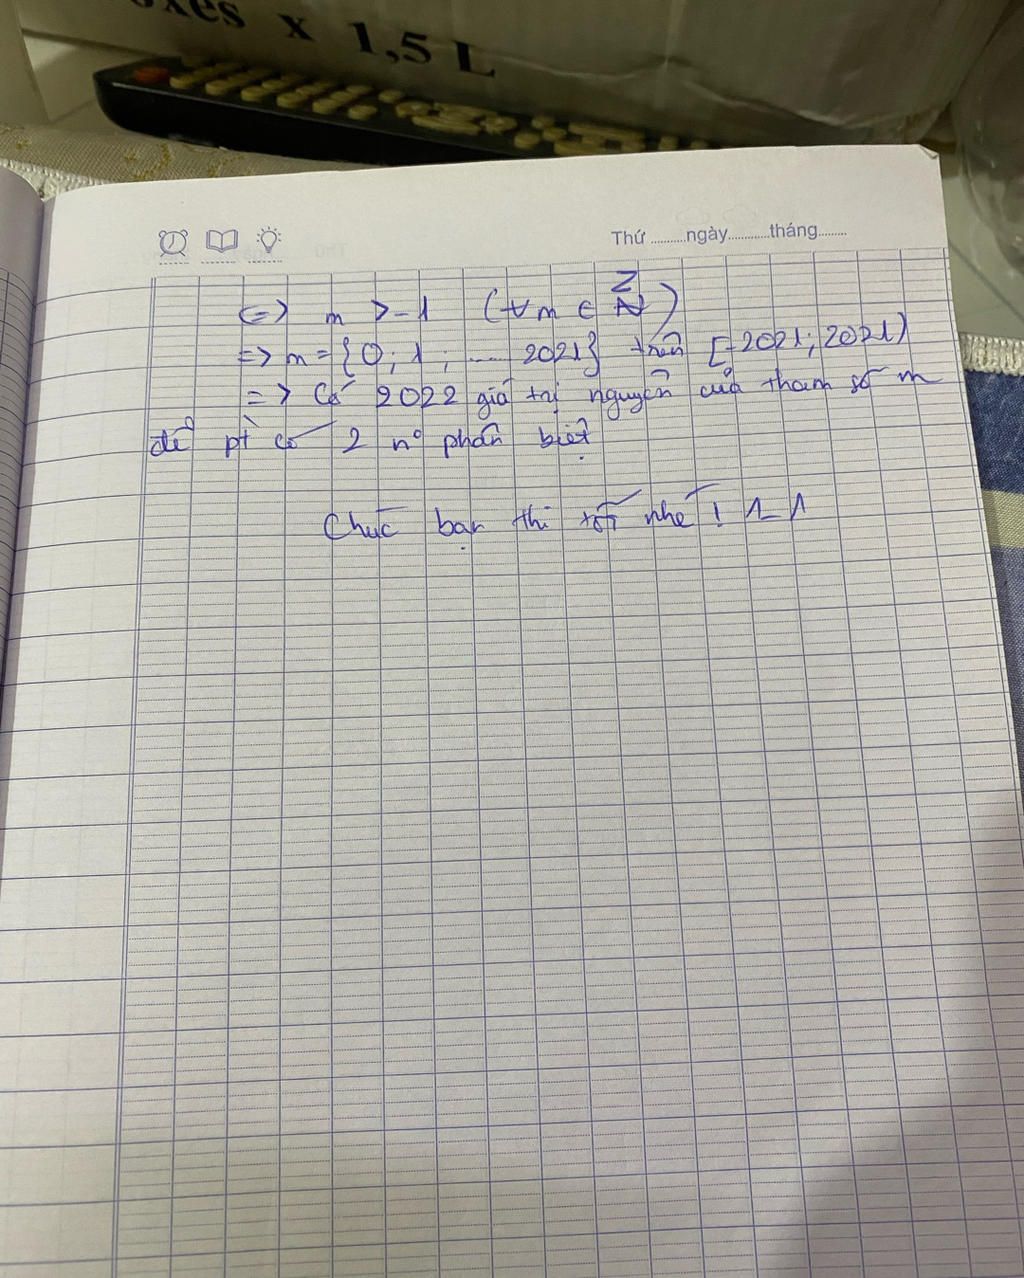 oxes x 1,5 L
Thứ ..........ngày............tháng........
<=> m > -1 (∀m ∈ Z)
=> m = {0; 1; .... 2021} trên [-2021; 2021)
=> Có 2022 giá trị nguyên của tham số m
để pt có 2 nº phân biệt
Chúc bạn thi tốt nhé ! ^_^